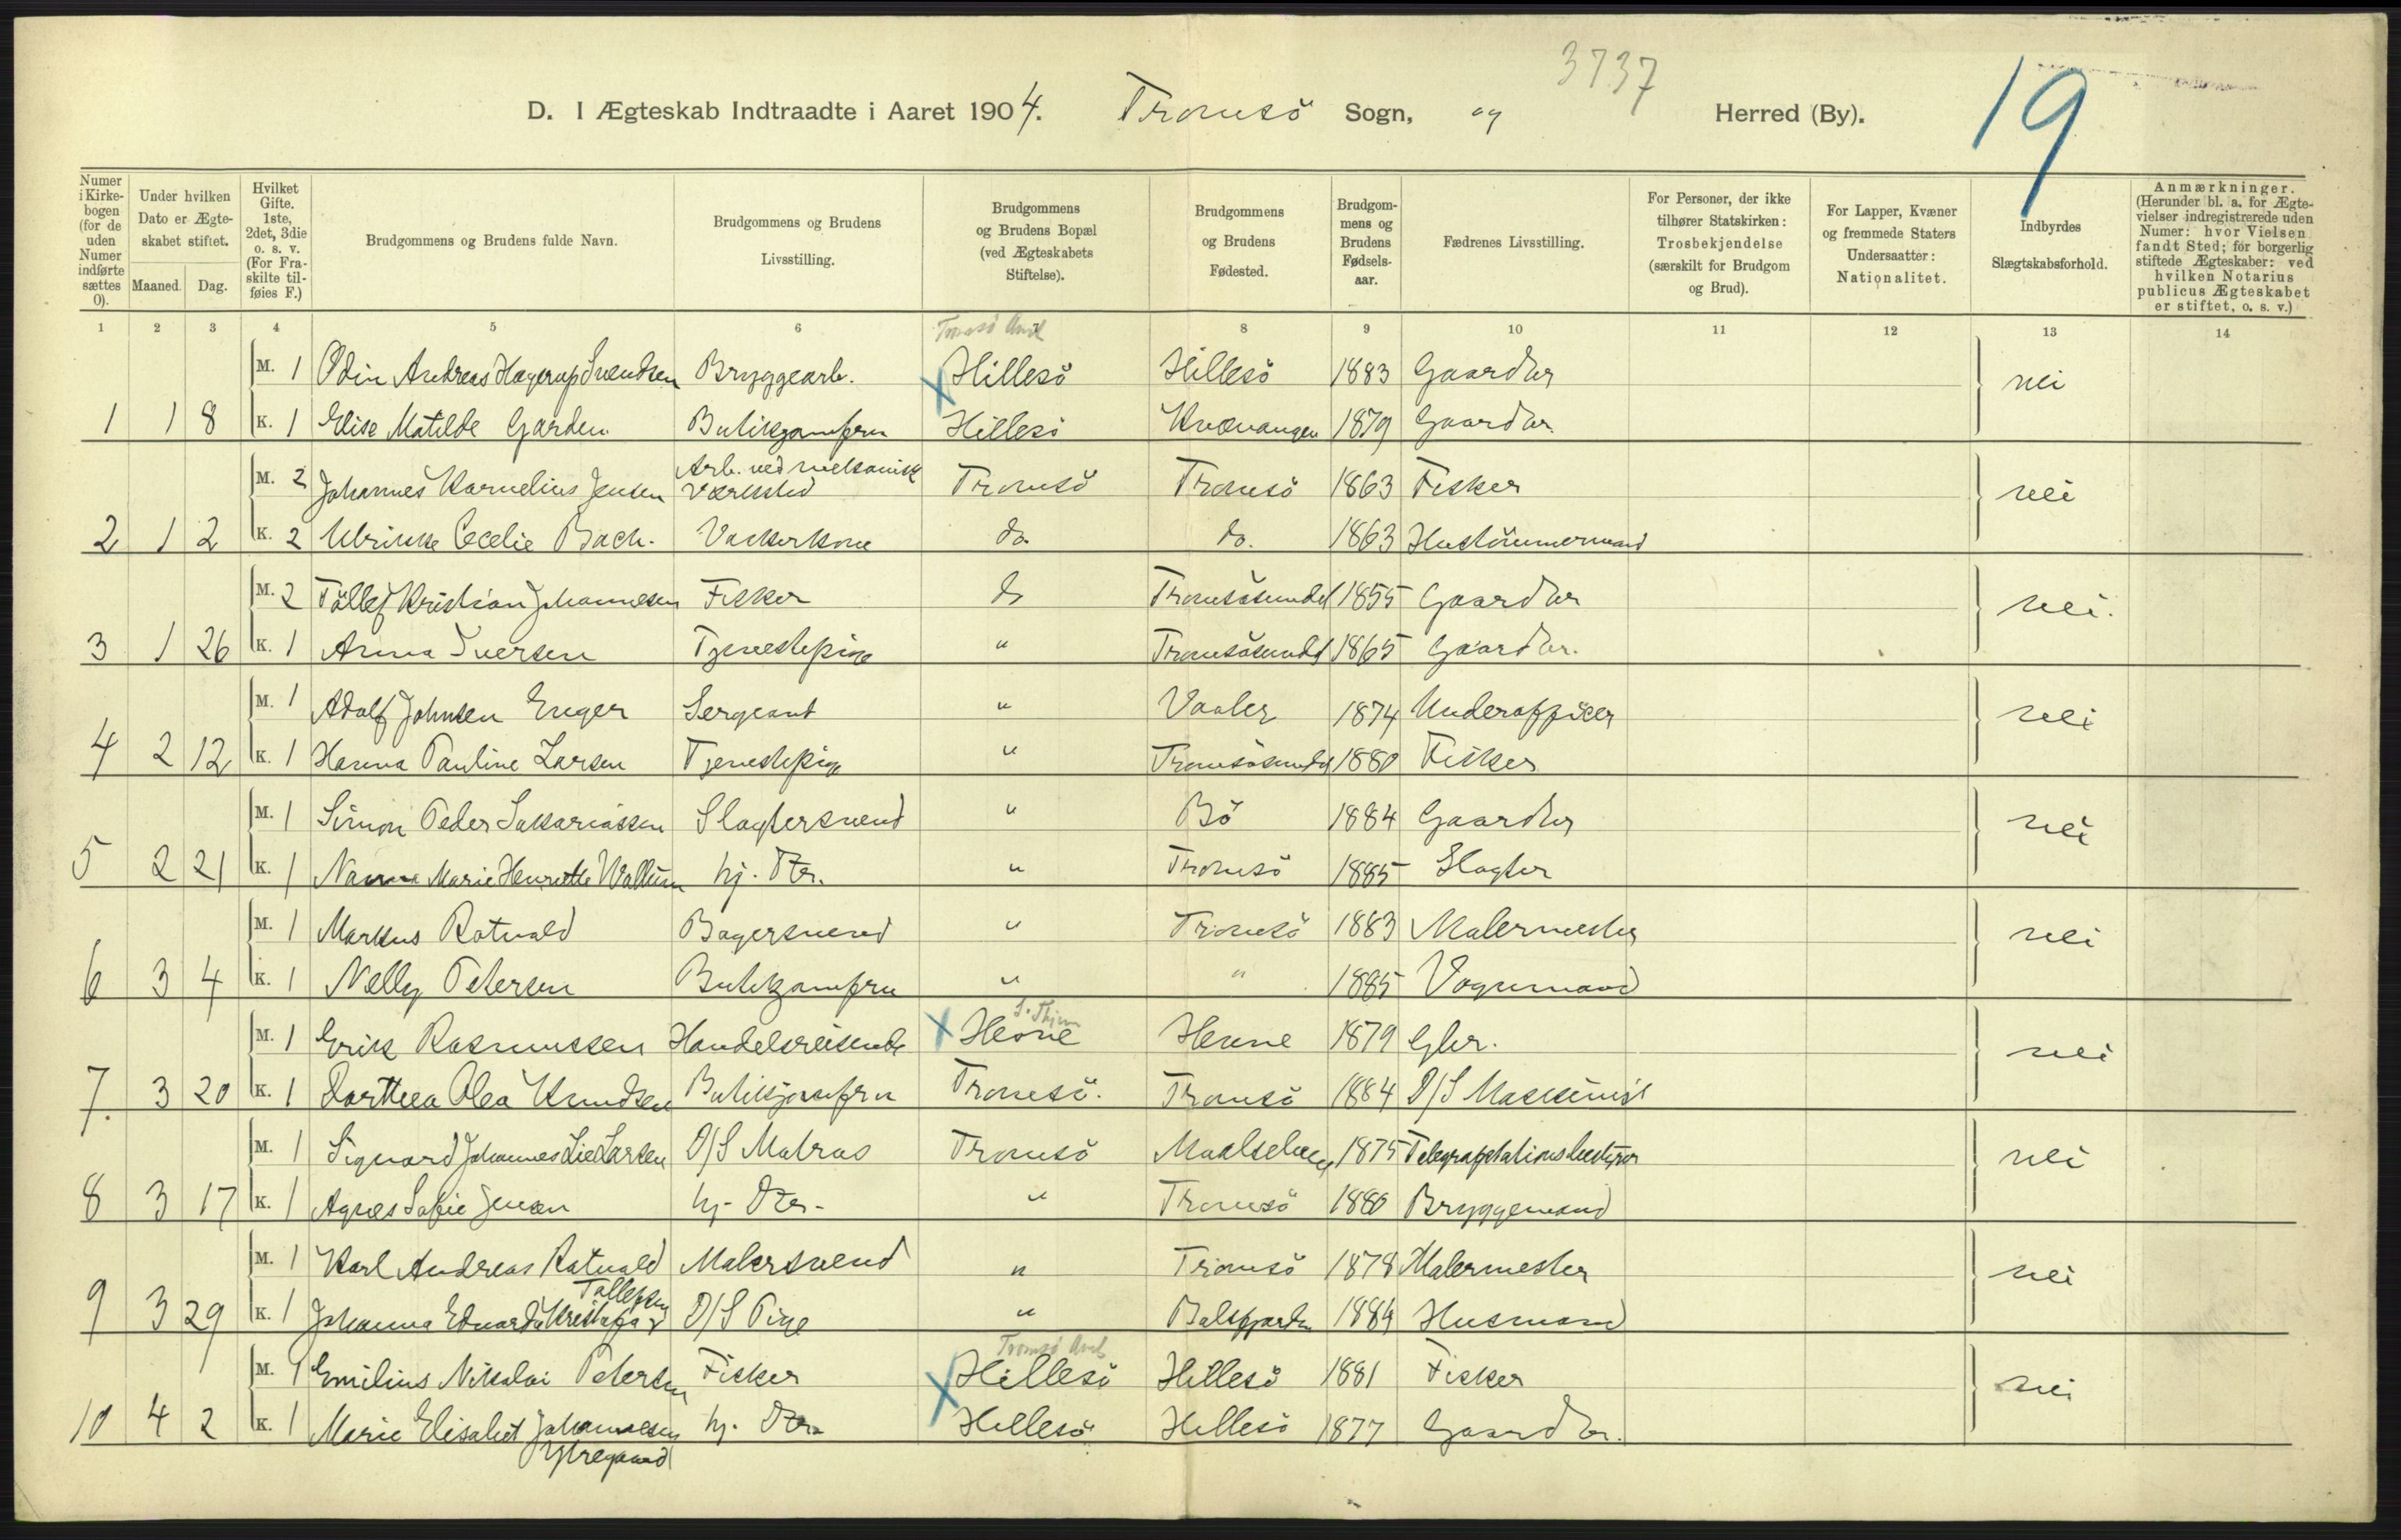 3737
19
D. I Ægteskab Indtraadte i Aaret 1904. Tromsö Sogn, og Herred (By).
Numer i Kirkebogen (for de uden Numer indførte sættes 0).
Under hvilken Dato er Ægteskabet stiftet.
Maaned. Dag.
Hvilket Gifte. 1ste, 2det, 3die o. s. v. (For Fraskilte tilføies F.)
Brudgommens og Brudens fulde Navn.
Brudgommens og Brudens Livsstilling.
Brudgommens og Brudens Bopæl (ved Ægteskabets Stiftelse).
Brudgommens og Brudens Fødested.
Brudgommens og Brudens Fødselsaar.
Fædrenes Livsstilling.
For Personer, der ikke tilhører Statskirken: Trosbekjendelse (særskilt for Brudgom og Brud).
For Lapper, Kvæner og fremmede Staters Undersaatter: Nationalitet.
Indbyrdes Slægtskabsforhold.
Anmærkninger. (Herunder bl. a. for Ægtevielser indregistrerede uden Numer: hvor Vielsen fandt Sted; for borgerlig stiftede Ægteskaber: ved hvilken Notarius publicus Ægteskabet er stiftet, o. s. v.)
1 2 3 4 5 6 7 8 9 10 11 12 13 14
Tromsö Amt
M. 1 Odin Andreas Hagerup Svendsen Bryggearb. Hillesö Hillesö 1883 Gaardbr nei
1 1 8 K. 1 Elise Matilde Garden Butikjomfru Hillesö Kvænangen 1879 Gaardbr.
M. 2 Johannes Kornelius Jensen Arb. ved mekanisk Værksted Tromsö Tromsö 1863 Fisker nei
2 1 2 K. 2 Ulrikke Cecelie Bach. Vaskerkone do. do. 1863 Hustömmermand
M. 2 Töllef Kristian Johannesen Fisker do Tromsösundet 1855 Gaardbr nei.
3 1 26 K. 1 Anna Iversen Tjenestepige " Tromsösundet 1865 Gaardbr.
M. 1 Adolf Johnsen Enger Sergeant " Vaaler 1874 Underofficer nei
4 2 12 K. 1 Hanna Pauline Larsen Tjenestepige " Tromsösundet 1880 Fisker
M. 1 Simon Peder Sakariassen Slagtersvend " Bö 1884 Gaardbr nei
5 2 21 K. 1 Nanna Marie Henriette Wallum hj. Dtr. " Tromsö 1885 Slagter
M. 1 Markus Rotvald Bagersvend " Tromsö 1883 Malermester nei
6 3 4 K. 1 Nelly Petersen Butikjomfru " " 1885 Vognmand
S. Thjem
M. 1 Erik Rasmussen Handelsreisende Hevne Hevne 1879 Gbr. nei
7. 3 20 K. 1 Dorthea Olea Knudsen Butikjomfru Tromsö. Tromsö 1884 D/S Maskinist
M. 1 Sigvard Johannes Lie Larsen D/S Matros Tromsö Maalselven 1875 Telegrafstationsbestyrer nei
8 3 17 K. 1 Agnes Sofie Jensen hj. Dtr. " Tromsö 1880 Bryggemand
M. 1 Karl Andreas Rotvald Malersvend " Tromsö 1878 Malermester nei
Tollefsen
9 3 29 K. 1 Johanna Edvarda Kristofa D/S Pige " Balsfjorden 1884 Husmand
Tromsö Amt
M. 1 Emilius Nikolai Petersen Fisker Hillesö Hillesö 1881 Fisker nei
10 4 2 K. 1 Marie Elisabet Johannesen hj. Dtr Hillesö Hillesö 1877 Gaardbr.
Ytregaard